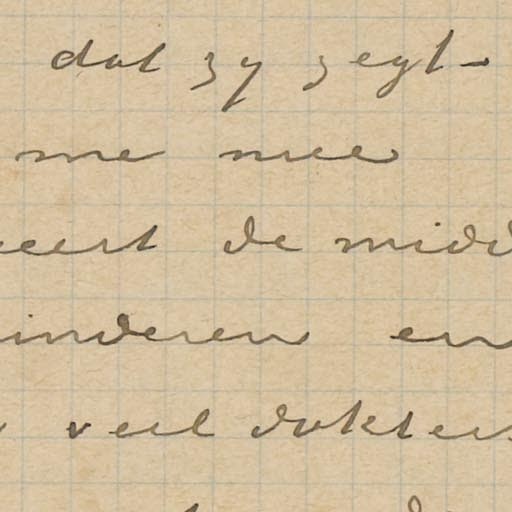 dat zy zegt-
me mee
eert de midd
inderen en
veel dokters